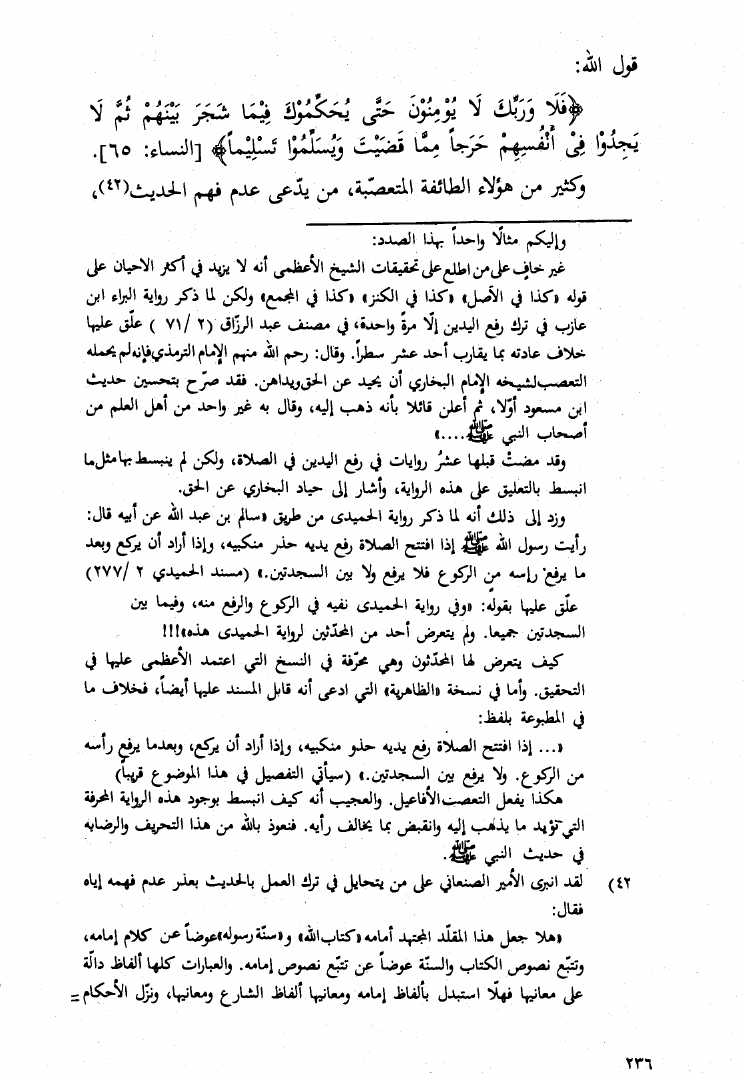 قول الله:
﴿فَلَا وَرَبِّكَ لَا يُوْمِنُوْنَ حَتَّى يُحَكِّمُوْكَ فِيْمَا شَجَرَ بَيْنَهُمْ ثُمَّ لَا
يَجِدُوْا فِىْ أَنْفُسِهِمْ حَرَجاً مِمَّا قَضَيْتَ وَيُسَلِّمُوْا تَسْلِيْماً﴾ [النساء: ٦٥].
وكثير من هؤلاء الطائفة المتعصّبة، من يدّعى عدم فهم الحديث(٤٢)،
وإليكم مثالًا واحداً بهذا الصدد:
غير خافٍ على من اطلع على تحقيقات الشيخ الأعظمى أنه لا يزيد في أكثر الاحيان على
قوله «كذا في الأصل» «كذا في الكنز» «كذا في المجمع» ولكن لما ذكر رواية البراء ابن
عازب في ترك رفع اليدين إلّا مرةً واحدة، في مصنف عبد الرزّاق (٢ /٧١ ) علّق عليها
خلاف عادته بما يقارب أحد عشر سطراً. وقال: رحم الله منهم الإمام الترمذي فإنه لم يحمله
التعصب لشيخه الإمام البخاري أن يحيد عن الحق ويداهن. فقد صرّح بتحسين حديث
ابن مسعود أوّلا، ثم أعلن قائلا بأنه ذهب إليه، وقال به غير واحد من أهل العلم من
أصحاب النبي ﷺ....»
وقد مضتْ قبلها عشرُ روايات في رفع اليدين في الصلاة، ولكن لم ينبسط بها مثل ما
انبسط بالتعليق على هذه الرواية، وأشار إلى حياد البخاري عن الحق.
وزد إلى ذلك أنه لما ذكر رواية الحميدى من طريق «سالم بن عبد الله عن أبيه قال:
رأيت رسول الله ﷺ إذا افتتح الصلاة رفع يديه حذر منكبيه، وإذا أراد أن يركع وبعد
ما يرفع رإسه من الركوع فلا يرفع ولا بين السجدتين.» (مسند الحميدي ٢ /٢٧٧)
علّق عليها بقوله: «وفي رواية الحميدى نفيه في الركوع والرفع منه، وفيما بين
السجدتين جميعا. ولم يتعرض أحد من المحدّثين لرواية الحميدى هذه»!!!
كيف يتعرض لها المحدّثون وهي محرّفة في النسخ التي اعتمد الأعظمى عليها في
التحقيق. وأما في نسخة «الظاهرية» التي ادعى أنه قابل المسند عليها أيضاً، فخلاف ما
في المطبوعة بلفظ:
«... إذا افتتح الصلاة رفع يديه حذو منكبيه، وإذا أراد أن يركع، وبعدما يرفع رأسه
من الركوع. ولا يرفع بين السجدتين.» (سيأتي التفصيل في هذا الموضوع قريباً)
هكذا يفعل التعصب الأفاعيل. والعجيب أنه كيف انبسط بوجود هذه الرواية المحرفة
التي تؤيد ما يذهب إليه وانقبض بما يخالف رأيه. فنعوذ بالله من هذا التحريف والرضابه
في حديث النبي ﷺ.
٤٢) لقد انبرى الأمير الصنعاني على من يتحايل في ترك العمل بالحديث بعذر عدم فهمه إياه
فقال:
«هلا جعل هذا المقلّد المجتهد أمامه «كتاب الله» و«سنّة رسوله» عوضاً عن كلام إمامه،
وتتبّع نصوص الكتاب والسنّة عوضاً عن تتبّع نصوص إمامه. والعبارات كلها ألفاظ دالّة
على معانيها فهلّا استبدل بألفاظ إمامه ومعانيها ألفاظ الشارع ومعانيها، ونزّل الأحكام =
٢٣٦